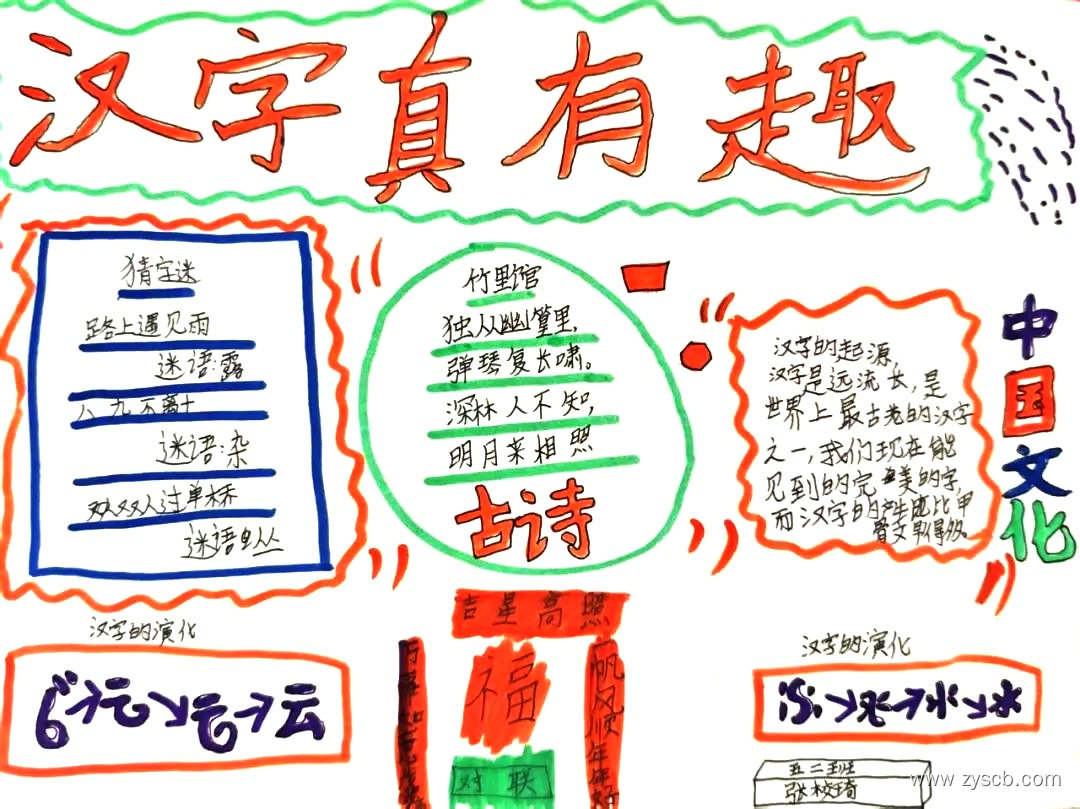 汉字真有趣
猜字迷
路上遇见雨
迷语:露
八九不离十
迷语:杂
双双人过单桥
迷语:丛
竹里馆
独从幽篁里,
弹琴复长啸。
深林人不知,
明月来相照
古诗
汉字的起源,
汉字是远流长,是
世界上最古老的汉字
之一,我们现在能
见到的完美的字,
而汉字的产生比甲
骨文早得多
中国文化
汉字的演化
云
吉星高照
福
帆风顺年年好
对联
汉字的演化
水
五二班
www.zyscb.com